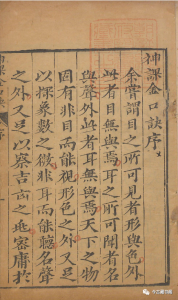 神課金口訣序
余嘗謂目之所可見者形與色外
此者目無與焉耳之所可聞者名
與聲外此者耳無與焉天下之物
固有非目而能視形色之外又足
以探象數之微非耳而能聽名聲
之外又足以察吉凶之兆審庸於